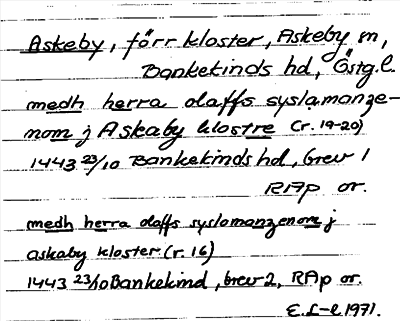 Askeby, förr kloster, Askeby sn,
Bankekinds hd, Östg.l.
medh herra olaffs syslomanze-
nom j Askaby klostre (r. 19-20)
1443 23/10 Bankekinds hd, brev 1
RAp or.
medh herra olaffs syslomanzenom j
askaby kloster (r. 16)
1443 23/10 Bankekind, brev 2, RAp or.
E.L-l 1971.